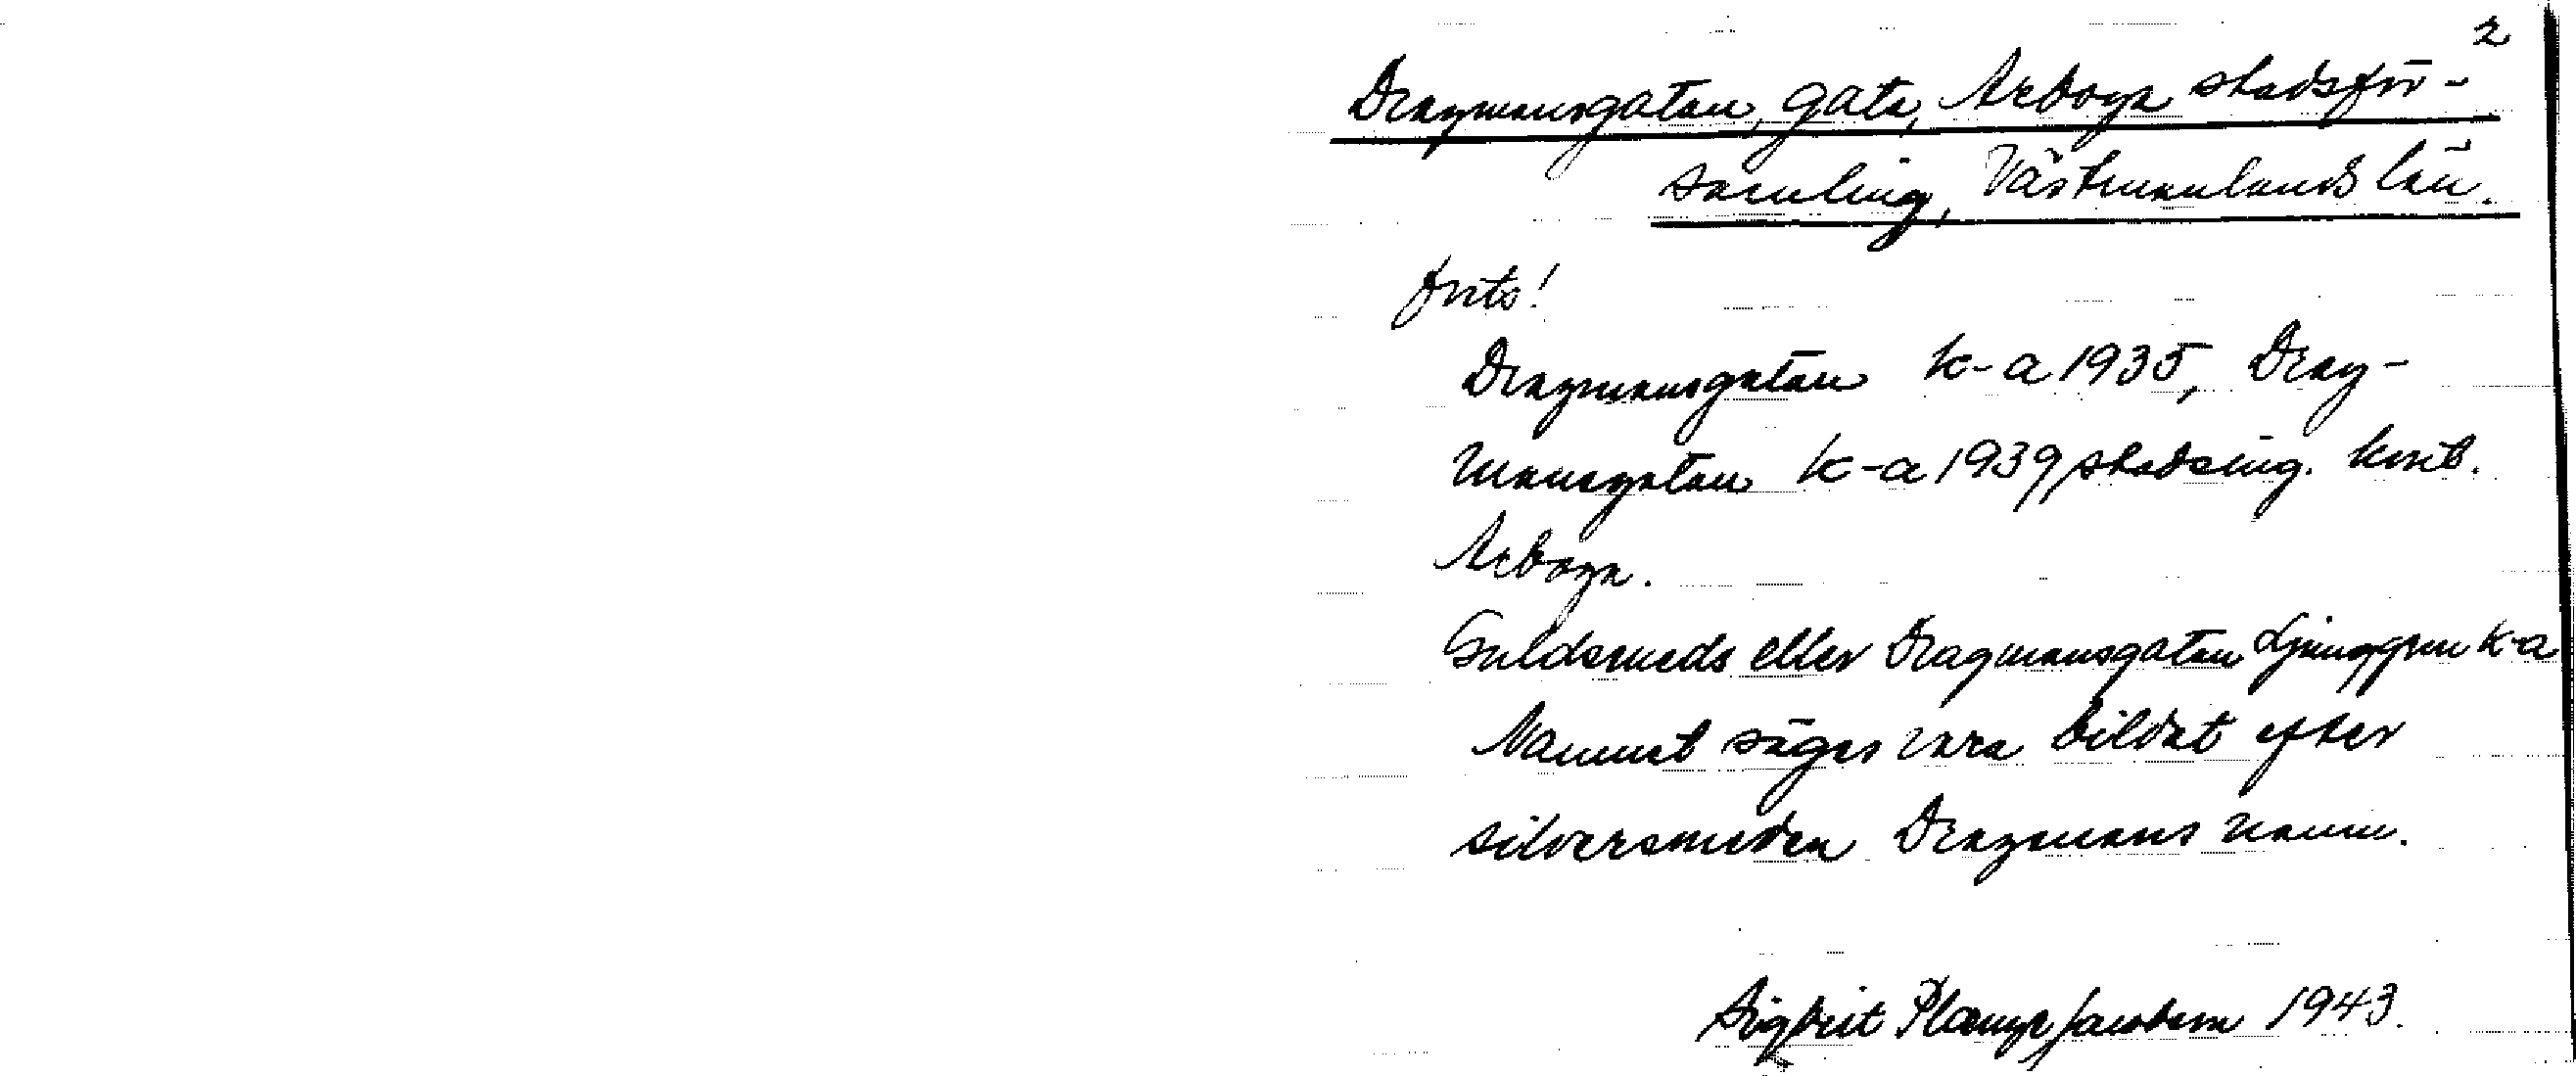 2
Dragmansgatan, gata, Arboga stadsför-
samling, Västmanlands län.
forts!
Dragmansgatan K-a 1935, Drag-
mansgatan K-a 1939 stadsing. kont.
Arboga.
Guldsmeds eller Dragmansgatan Ljunggren K-a
Namnet säges vara bildat efter
silversmeden Dragmans namn.
Sigbrit Plænge Jacobson 1943.